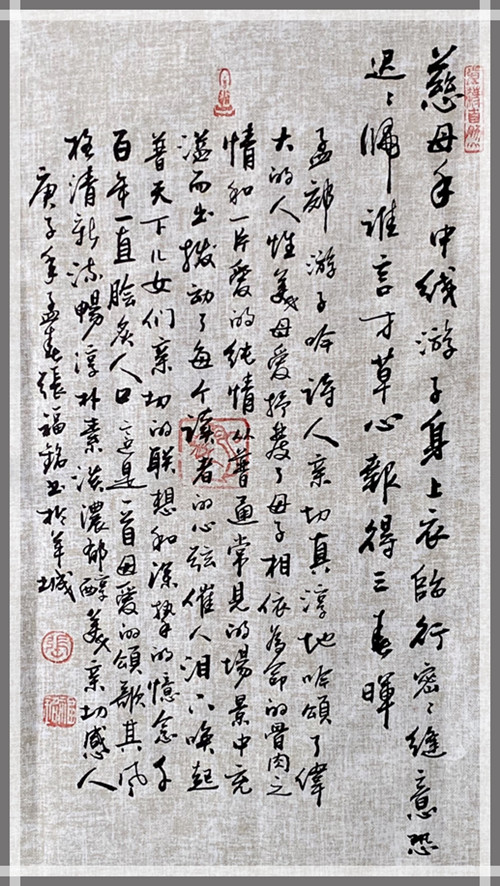 慈母手中线游子身上衣临行密〻缝意恐
迟〻歸谁言寸草心報得三春暉
孟郊游子吟诗人亲切真淳地吟頌了偉
大的人性美母愛抒發了母子相依為命的骨肉之
情和一片愛的纯情从普通常见的場景中充
溢而出撥动了每个读者的心弦催人泪下唤起
普天下儿女们亲切的联想和深挚的憶念千
百年一直脍炙人口这是一首母愛的頌歌其风
格清新流暢淳朴素淡濃郁醇美亲切感人
庚子年孟春張福銘书於羊城